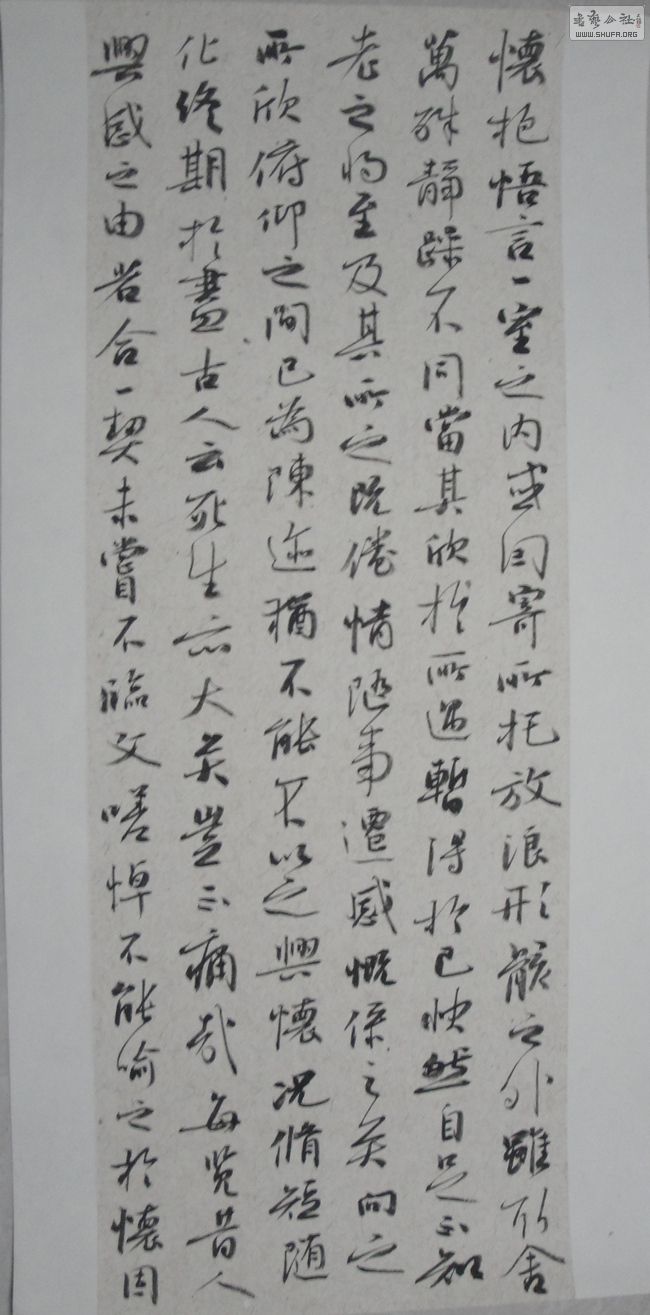 懷抱悟言一室之內或因寄所托放浪形骸之外雖舍
萬殊靜躁不同當其欣於所遇暫得於己快然自足不知
老之將至及其所之既倦情隨事遷感慨係之矣向之
所欣俯仰之間已為陳迹猶不能不以之興懷況脩短隨
化終期於盡古人云死生亦大矣豈不痛哉每覽昔人
興感之由若合一契未嘗不臨文嗟悼不能喻之於懷固
書藝公社
WWW.SHUFA.ORG